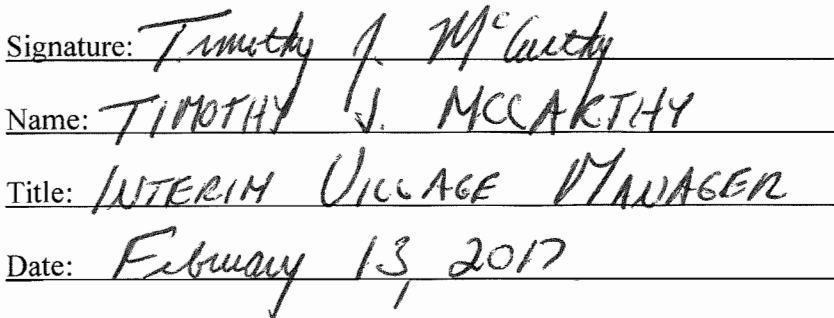 Signature: Timothy J. McCarthy
Name: TIMOTHY J. MCCARTHY
Title: INTERIM VILLAGE MANAGER
Date: February 13, 2017